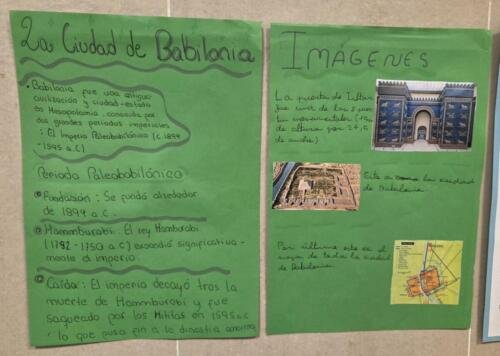 La Ciudad de Babilonia
• Babilonia fue una antigua
civilización y ciudad-estado
de Mesopotamia, conocida por
dos grandes periodos imperiales
: El Imperio Paleobabilónico (c. 1894
-1595 a.C)
Periodo Paleobabilónico
Fundación: Se fundó alrededor
de 1894 a.c.
Hammurabi: El rey Hamburabi
(1792-1750 a.C) expandió significativa-
mente el imperio.
Caída: El imperio decayó tras la
muerte de Hammburabi y fue
saqueado por los Hititas en 1595 a.c
lo que puso fin a la dinastía amorrea
IMÁGENES
La puerta de Ishtar
fue una de las 8
monumentales
de altura por
de ancho)
Esta es la ciudad
de Babilonia
Por último este es el
mapa de toda la ciudad
de Babilonia.